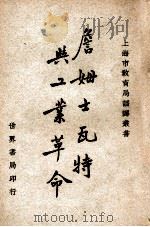 上海市教育局翻譯叢書
詹姆士瓦特
與工業革命
世界書局印行